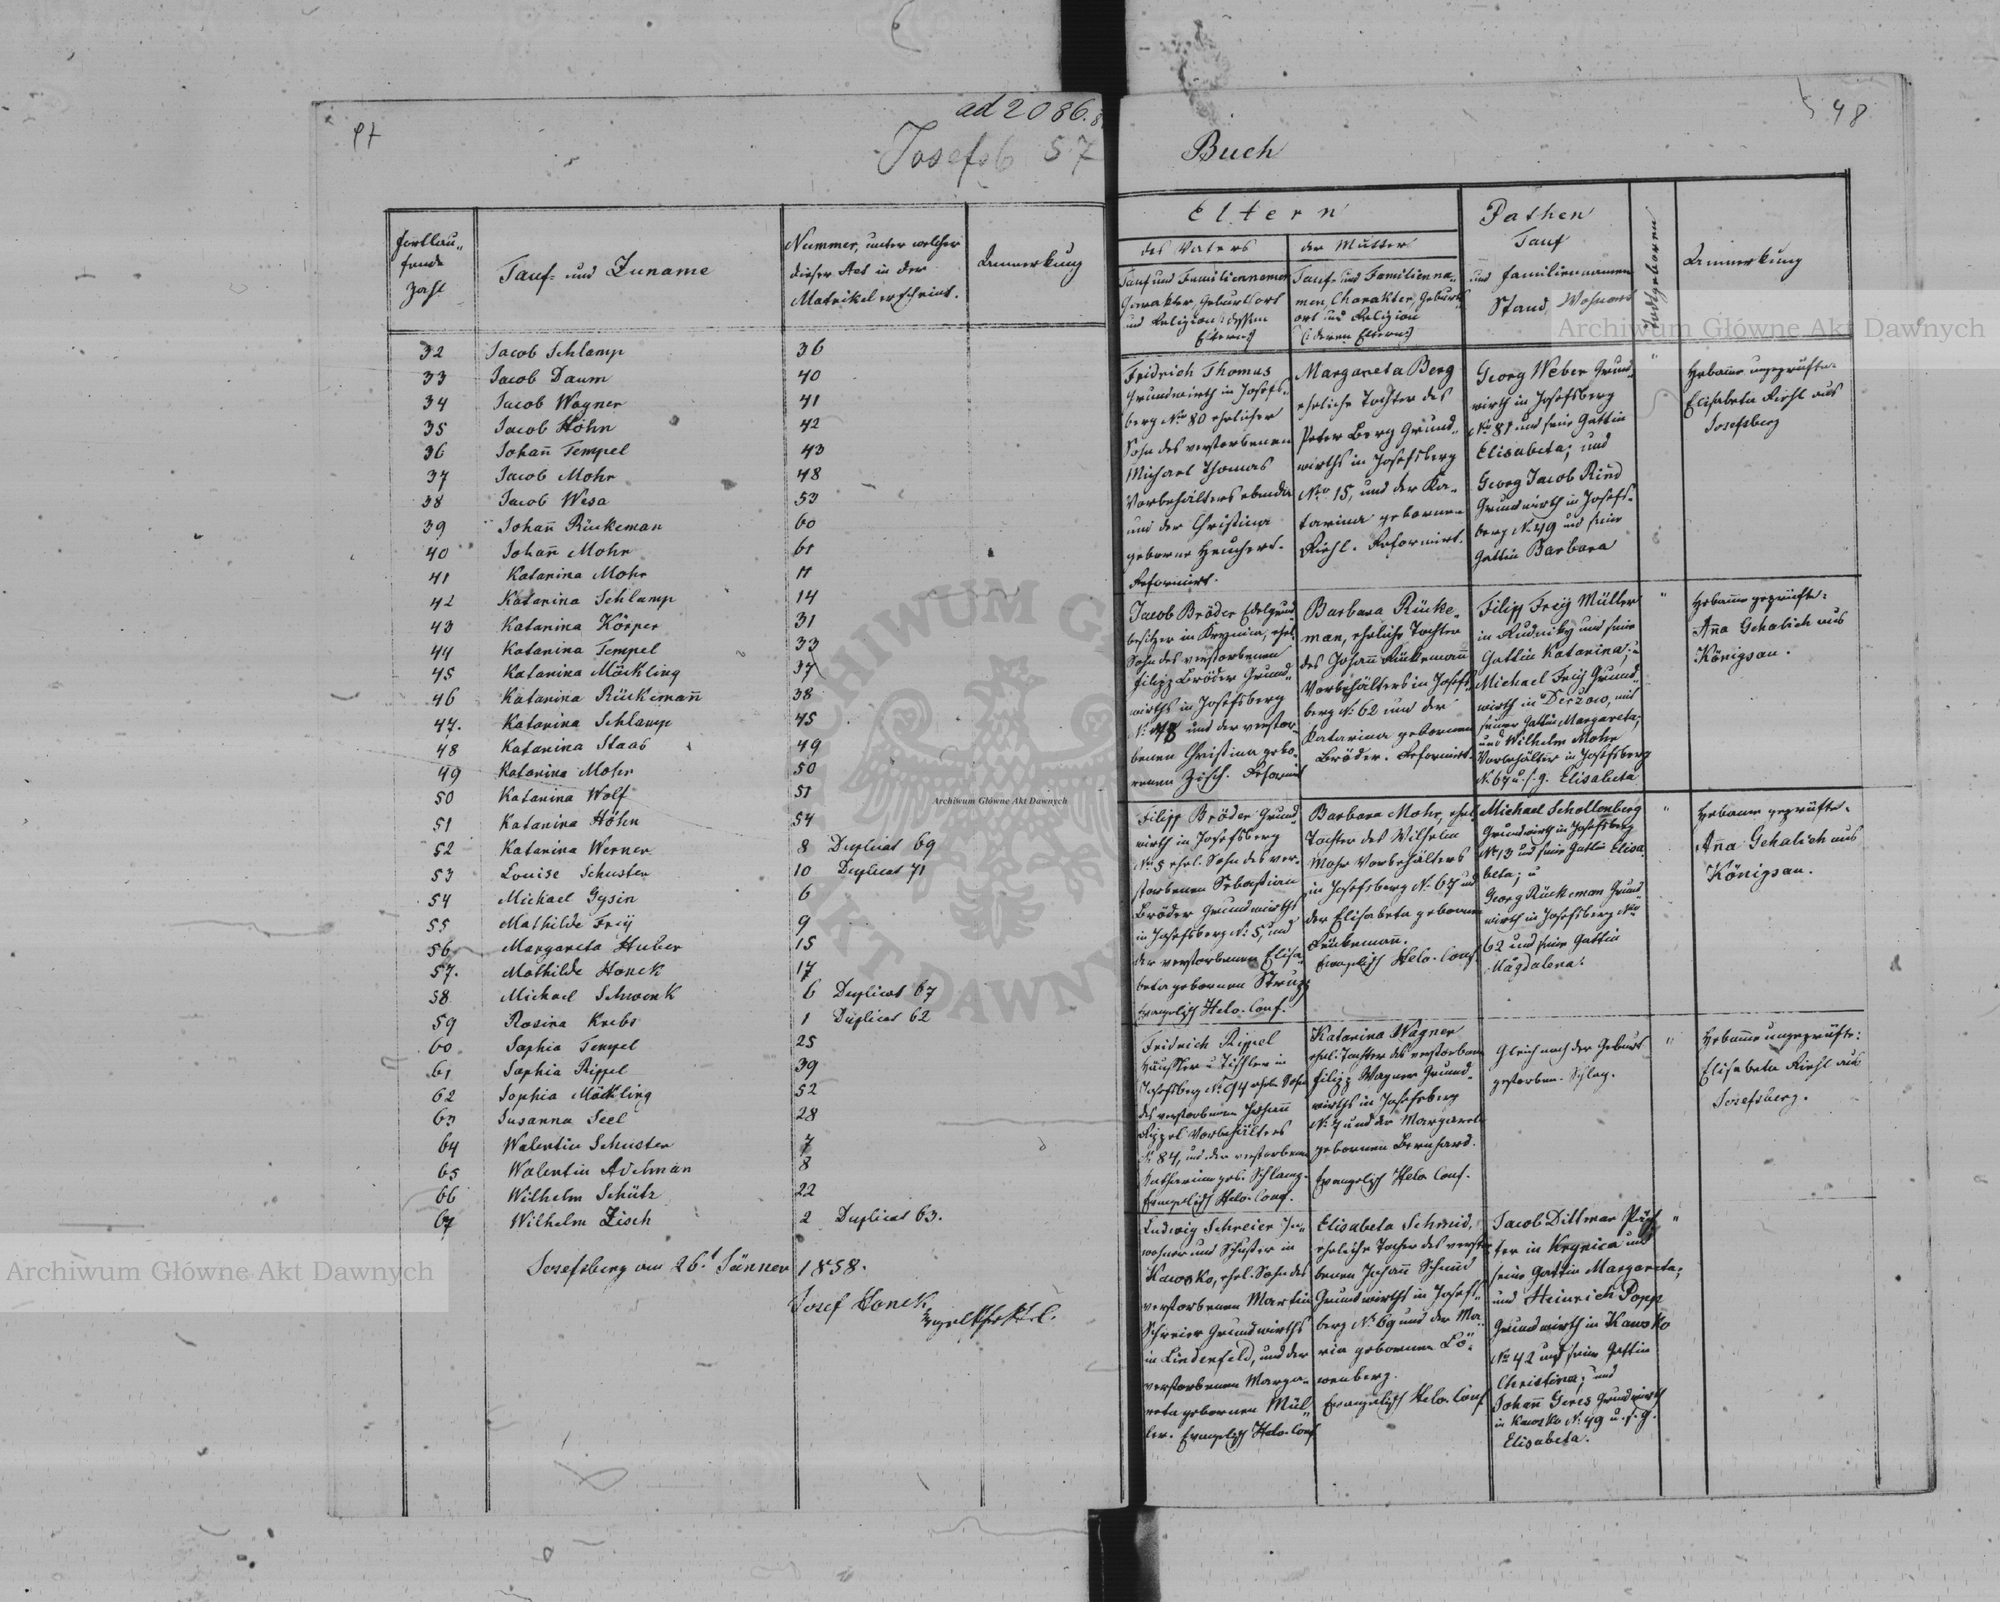 ad 2086.
Josefsb 57
fortlau-
fende
Zahl
Tauf- und Zuname
Nummer, unter welcher
dieser Act in der
Matrikel erscheint.
Anmerkung
32 Jacob Schlamp 36
33 Jacob Daum 40
34 Jacob Wagner 41
35 Jacob Höhn 42
36 Johañ Tempel 43
37 Jacob Mohr 48
38 Jacob Wesa 53
39 Johañ Rückeman 60
40 Johañ Mohr 61
41 Katarina Mohr 11
42 Katarina Schlamp 14
43 Katarina Körper 31
44 Katarina Tempel 33
45 Katarina Möckling 37
46 Katarina Rückemañ 38
47. Katarina Schlamp 45
48 Katarina Staab 49
49 Katarina Mohr 50
50 Katarina Wolf 51
51 Katarina Höhn 54
52 Katarina Werner 8 Duplicat 69
53 Louise Schuster 10 Duplicat 71
54 Michael Gysin 6
55 Mathilde Freÿ 9
56 Margareta Huber 15
57. Mathilde Honek 17
58 Michael Schwenk 6 Duplicat 67
59 Rosina Krebs 1 Duplicat 62
60 Sophia Tempel 25
61 Sophia Rippel 39
62 Sophia Möckling 52
63 Susanna Seel 28
64 Walentin Schuster 7
65 Walentin Adelman 8
66 Wilhelm Schütz 22
67 Wilhelm Zisch 2 Duplicat 63.
Josefsberg am 26t Jänner 1858.
Josef Honek
48
Buch
Eltern
des Vaters
Tauf und Familiennamen
Charakter, Geburtsort
und Religion dessen
Eltern
der Mutter
Tauf- und Familienna-
men, Charakter, Geburts-
ort und Religion
(: deren Eltern :)
Pathen
Tauf
und Familiennamen
Stand, Wohnort
Todtgeboren
Anmerkung
Fridrich Thomas
Grundwirth in Josefs-
berg No 80 ehelicher
Sohn des verstorbenen
Michael Thomas
Vorbehälters ebenda
und der Christina
geborne Heuchert.
Reformirt.
Margareta Berg
eheliche Tochter des
Peter Berg Grund-
wirths in Josefsberg
No 15, und der Ka-
tarina geborne
Riehl. Reformirt.
Georg Weber Grund-
wirth in Josefsberg
No 81 und seine Gattin
Elisabeta; und
Georg Jacob Rind
Grundwirth in Josefs-
berg No 49 und seine
Gattin Barbara
Hebamme ungeprüfte
Elisabeta Riehl aus
Josefsberg
Jacob Bröder Edelgrund-
besitzer in Krynica, ehel.
Sohn des verstorbenen
Filipp Bröder Grund-
wirths in Josefsberg
No 48 und der verstor-
benen Christina gebo-
renen Zisch. Reformirt
Barbara Rücke-
man, eheliche Tochter
des Johann Rückemañ
Vorbehälters in Josefs-
berg No 62 und der
Katarina gebornen
Bröder. Reformirt.
Filipp Freÿ Müller
in Rudniky und seine
Gattin Katarina; u
Michael Freÿ Grund-
wirth in Derzow, mit
seiner Gattin Margareta;
und Wilhelm Mohr
Vorbehälter in Josefsberg
No 67 u. s. g. Elisabeta
Hebamme geprüfte:
Aña Gehalich aus
Königsau.
Filipp Bröder Grund-
wirth in Josefsberg
No 5 ehel. Sohn des ver-
storbenen Sebastian
Bröder Grundwirths
in Josefsberg No 5, und
der verstorbenen Elisa-
beta gebornen Strupp
Evangelisch Helv. Conf.
Barbara Mohr, ehel.
Tochter des Wilhelm
Mohr Vorbehälters
in Josefsberg No 67 und
der Elisabeta gebornen
Rückemañ.
Evangelisch Helv. Conf.
Michael Schollenberg
Grundwirth in Josefsberg
No 13 und seine Gattin Elisa-
beta; u
Georg Rückeman Grund-
wirth in Josefsberg No
62 und seine Gattin
Magdalena.
Hebamme geprüfte.
Aña Gehalich aus
Königsau.
Fridrich Rippel
Häusler u Tischler in
Josefsberg No 94 ehel. Sohn
des verstorbenen Johann
Rippel Vorbehälters
No 84, und der verstorbenen
Katharina geb. Schlamp.
Evangelisch Helv. Conf.
Katarina Wagner
ehel. Tochter des verstorbenen
Filipp Wagner Grund-
wirths in Josefsberg
No 7 und der Margareta
gebornen Bernhard.
Evangelisch Helv. Conf.
Gleich nach der Geburt
gestorben. Schlag.
Hebamme ungeprüfte:
Elisabeta Riehl aus
Josefsberg.
Ludwig Schreier In-
wohner und Schuster in
Kawsko, ehel. Sohn des
verstorbenen Martin
Schreier Grundwirths
in Lindenfeld, und der
verstorbenen Marga-
reta gebornen Mül-
ler. Evangelisch Helv. Conf
Elisabeta Schmid,
eheliche Tochter des verstor-
benen Johañ Schmid
Grundwirths in Josefs-
berg No 69 und der Ma-
ria gebornen Lö-
wenberg.
Evangelisch Helv. Conf.
Jacob Dittmar Päch-
ter in Krynica und
seine Gattin Margareta;
und Heinrich Popp
Grundwirth in Kawsko
No 42 und seine Gattin
Christina; und
Johañ Geres Grundwirth
in Kawsko No 49 u. s. g.
Elisabeta.
Archiwum Główne Akt Dawnych
Archiwum Główne Akt Dawnych
Archiwum Główne Akt Dawnych